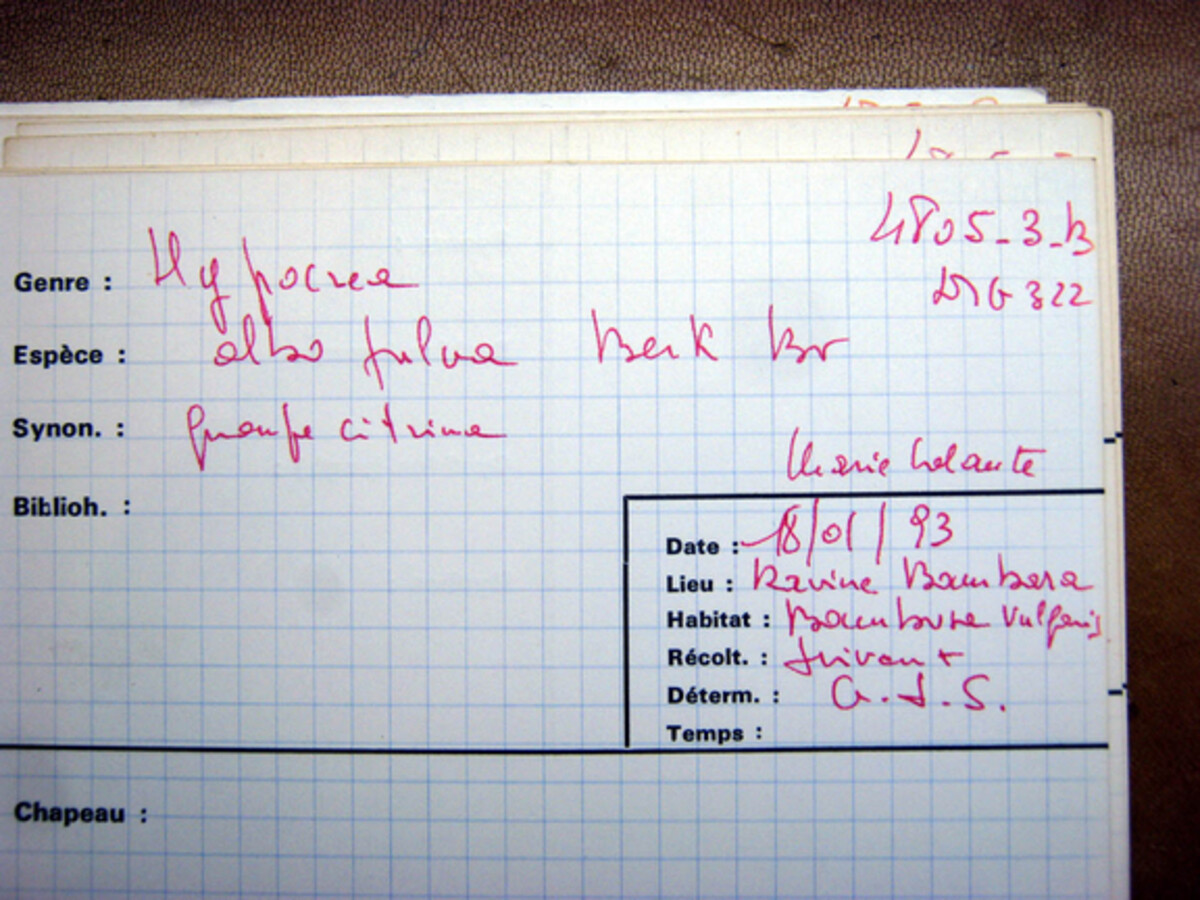 4805-3-B
Genre : Hypocrea
DIG 322
Espèce : albo fulva Berk Br
Synon. : groupe citrina
Marie Galante
Biblioh. :
Date : 18/01/93
Lieu : Ravine Bambara
Habitat : Bambusa vulgaris
Récolt. :
Déterm. : G.J.S.
Temps :
Chapeau :